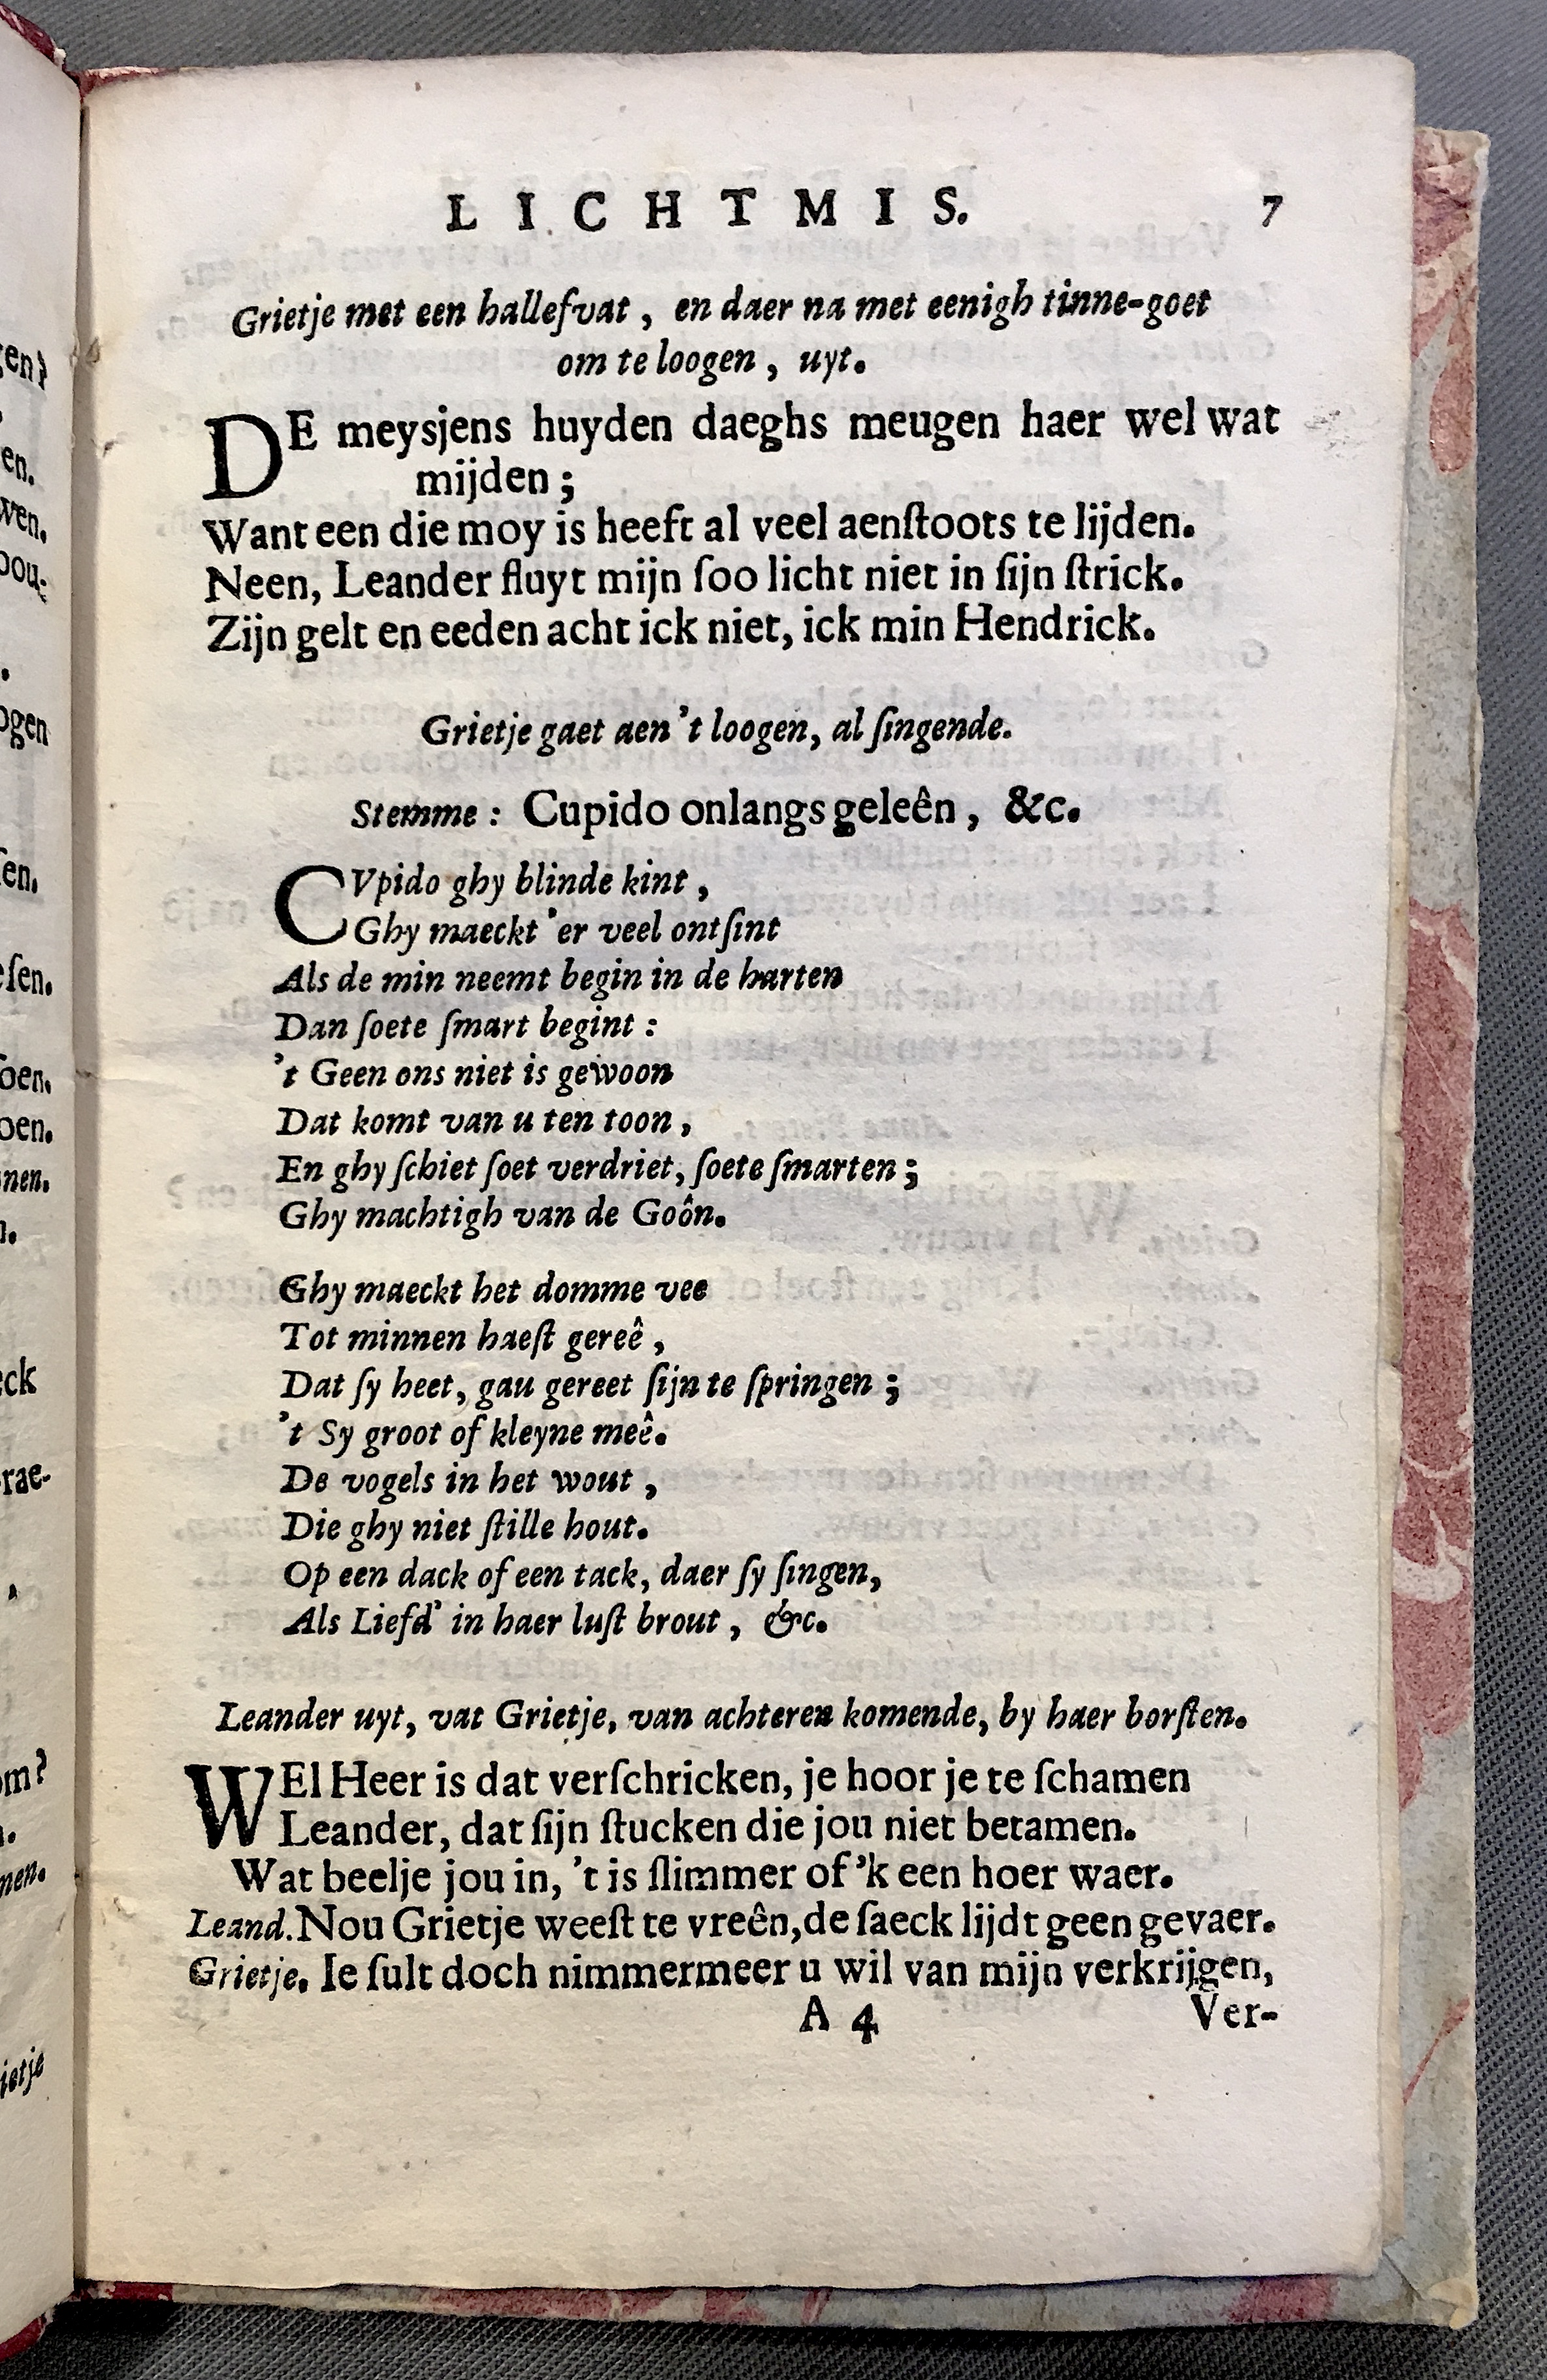 LICHTMIS. 7
Grietje met een hallefvat, en daer na met eenigh tinne-goet
om te loogen, uyt.
DE meysjens huyden daeghs meugen haer wel wat
mijden;
Want een die moy is heeft al veel aenſtoots te lijden.
Neen, Leander fluyt mijn ſoo licht niet in ſijn ſtrick.
Zijn gelt en eeden acht ick niet, ick min Hendrick.
Grietje gaet aen't loogen, al ſingende.
Stemme: Cupido onlangs geleên, &c.
CVpido ghy blinde kint,
Ghy maeckt 'er veel ontſint
Als de min neemt begin in de harten
Dan ſoete ſmart begint:
't Geen ons niet is gewoon
Dat komt van u ten toon,
En ghy ſchiet ſoet verdriet, ſoete ſmarten;
Ghy machtigh van de Goôn.
Ghy maeckt het domme vee
Tot minnen haeſt gereê,
Dat ſy heet, gau gereet ſijn te ſpringen;
't Sy groot of kleyne meê.
De vogels in het wout,
Die ghy niet ſtille hout.
Op een dack of een tack, daer ſy ſingen,
Als Liefd' in haer luſt brout, &c.
Leander uyt, vat Grietje, van achteren komende, by haer borſten.
WEl Heer is dat verſchricken, je hoor je te ſchamen
Leander, dat ſijn ſtucken die jou niet betamen.
Wat beelje jou in, 't is ſlimmer of 'k een hoer waer.
Leand. Nou Grietje weeſt te vreên, de ſaeck lijdt geen gevaer.
Grietje. Ie ſult doch nimmermeer u wil van mijn verkrijgen,
A 4 Ver-